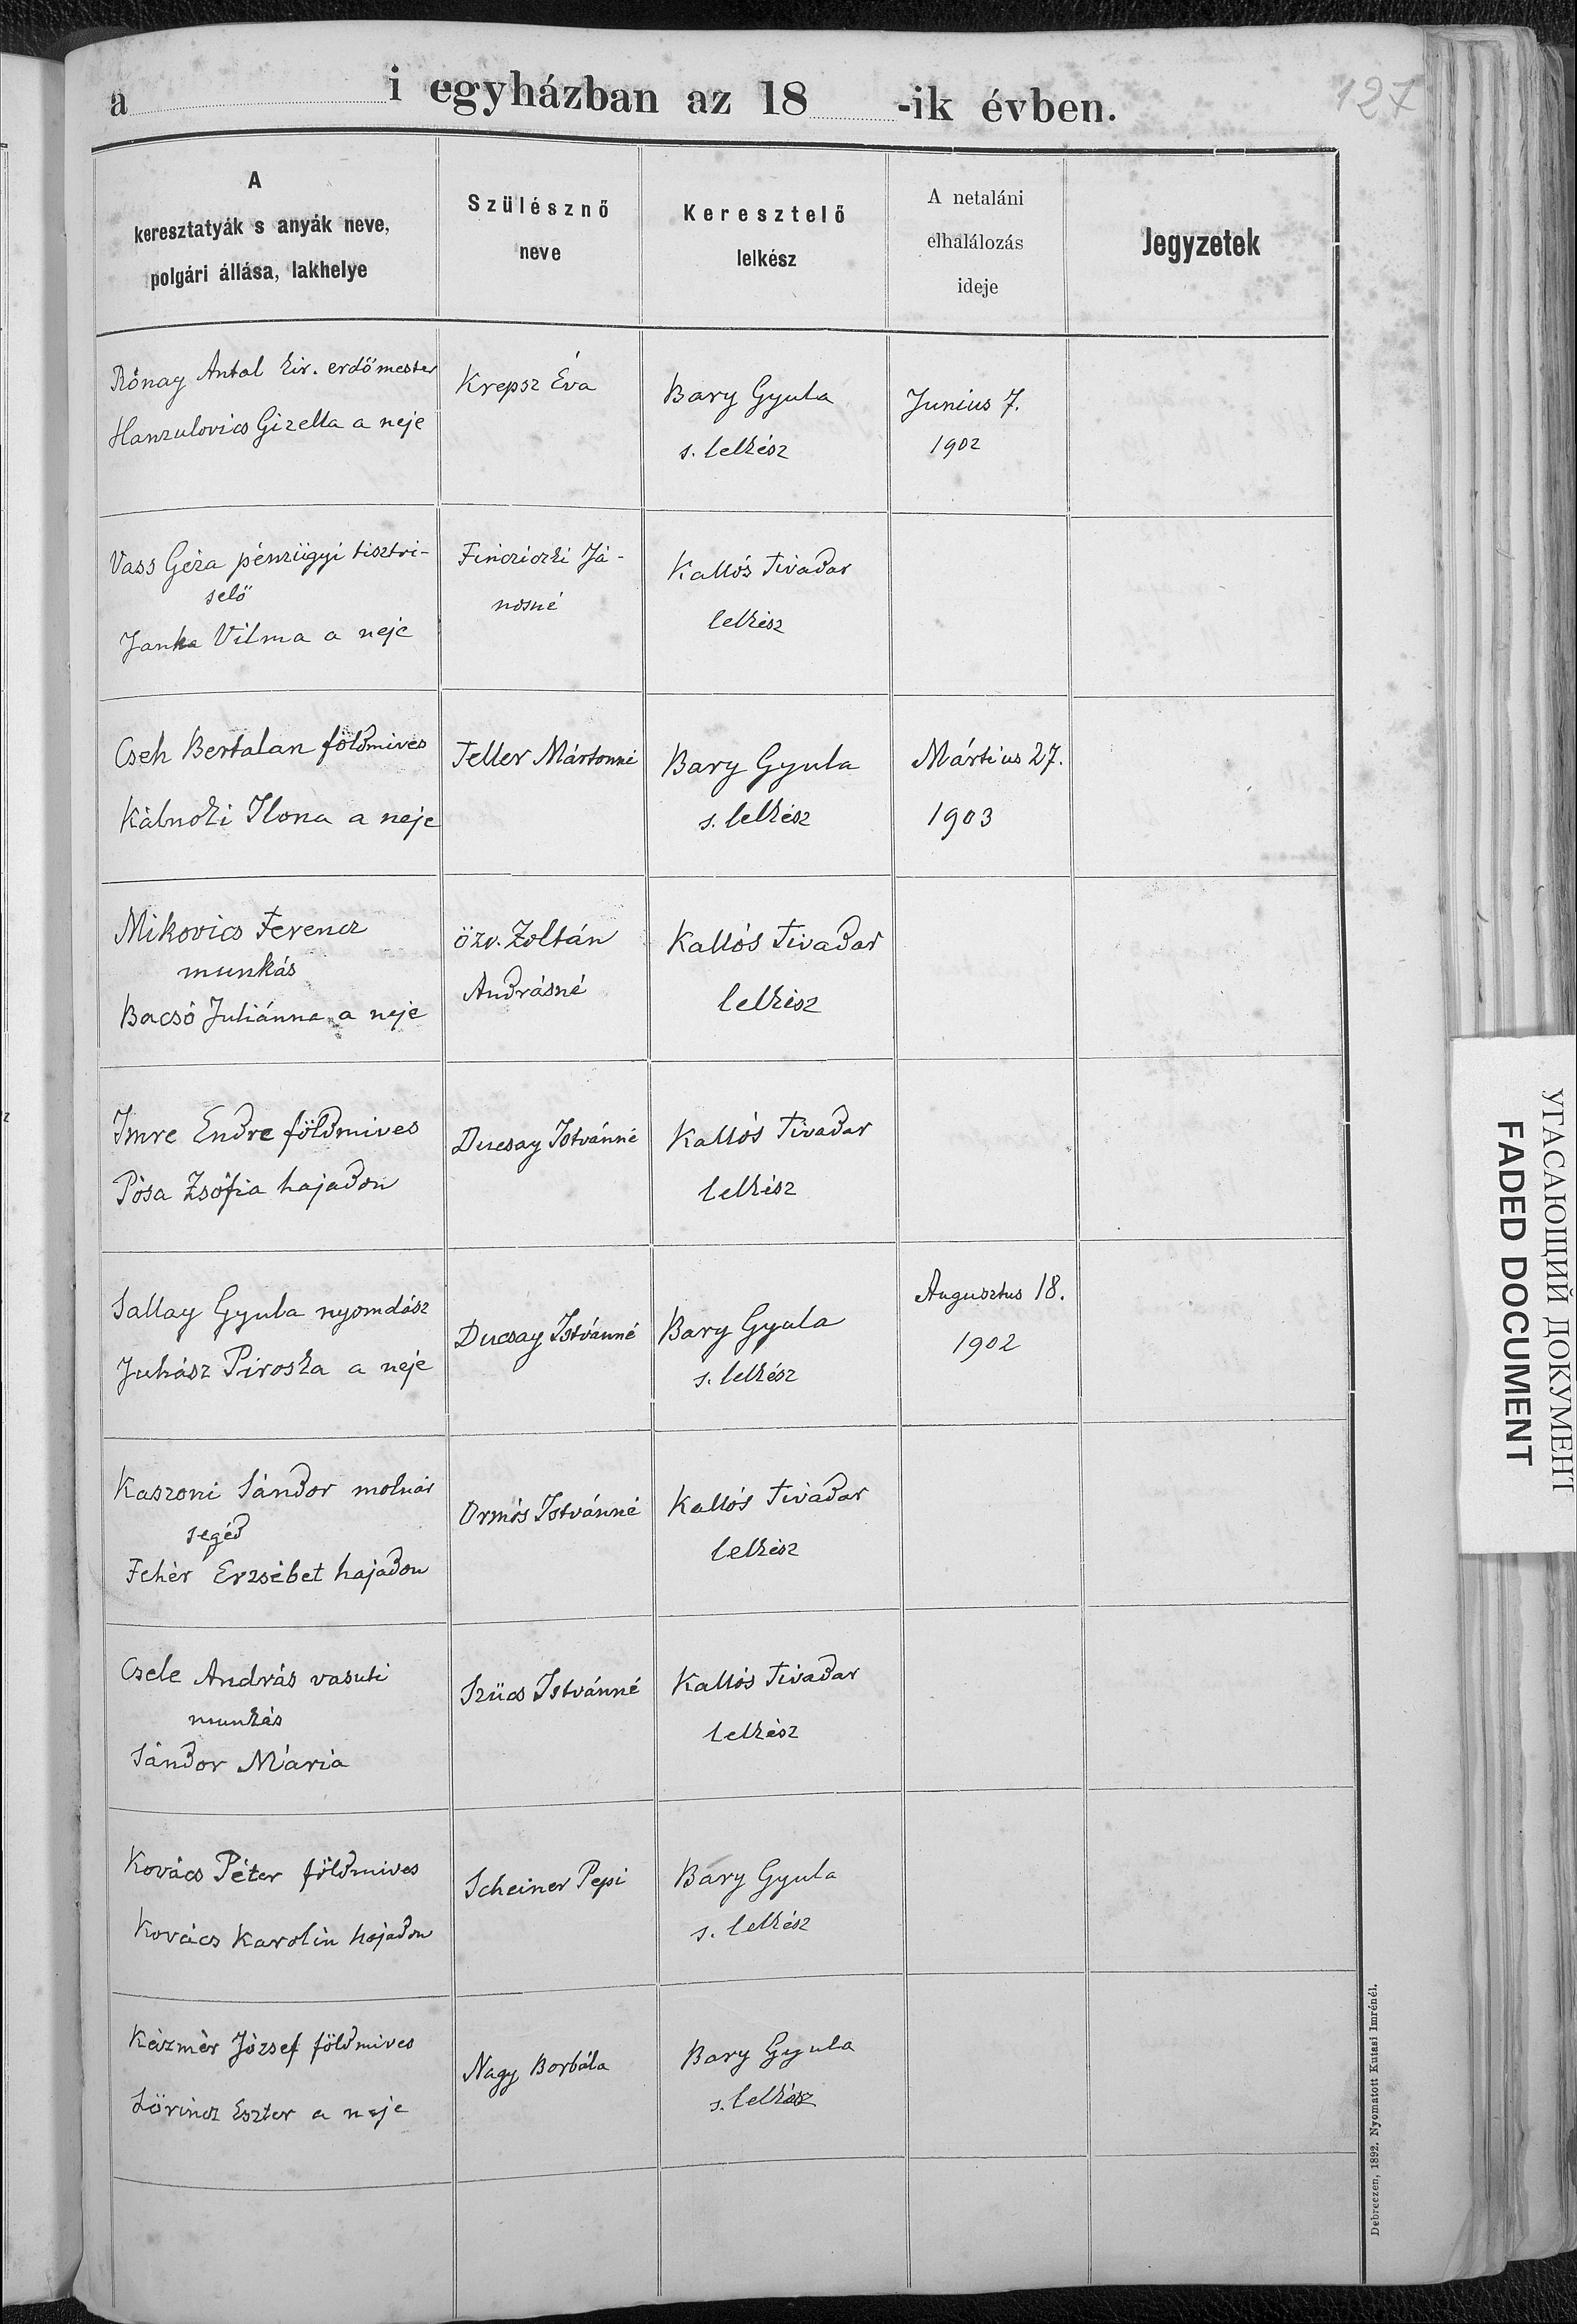 a i egyházban az 18 -ik évben.
127
A
keresztatyák s anyák neve,
polgári állása, lakhelye
Szülésznő
neve
Keresztelő
lelkész
A netaláni
elhalálozás
ideje
Jegyzetek
Rónay Antal kir. erdőmester
Hanzulovics Gizella a neje
Krepsz Éva
Bary Gyula
s. lelkész
Junius 7.
1902
Vass Géza pénzügyi tisztvi-
selő
Janka Vilma a neje
Fincziczki Já-
nosné
Kallós Tivadar
lelkész
Cseh Bertalan földmives
Kálnoki Ilona a neje
Teller Mártonné
Bary Gyula
s. lelkész
Mártius 27.
1903
Mikovics Ferencz
munkás
Bacsó Juliánna a neje
özv. Zoltán
Andrásné
Kallós Tivadar
lelkész
Imre Endre földmives
Pósa Zsófia hajadon
Ducsay Istvánné
Kallós Tivadar
lelkész
Sallay Gyula nyomdász
Juhász Piroska a neje
Ducsay Istvánné
Bary Gyula
s. lelkész
Augusztus 18.
1902
Kaszoni Sándor molnár
segéd
Fehér Erzsébet hajadon
Ormós Istvánné
Kallós Tivadar
lelkész
Csele András vasuti
munkás
Sándor Mária
Szücs Istvánné
Kallós Tivadar
lelkész
Kovács Péter földmives
Kovács Karolin hajadon
Scheiner Pepi
Bary Gyula
s. lelkész
Kézmér József földmives
Lőrincz Eszter a neje
Nagy Borbála
Bary Gyula
s. lelkész
Debreczen, 1892. Nyomatott Kutasi Imrénél.
УГАСАЮЩИЙ ДОКУМЕНТ
FADED DOCUMENT